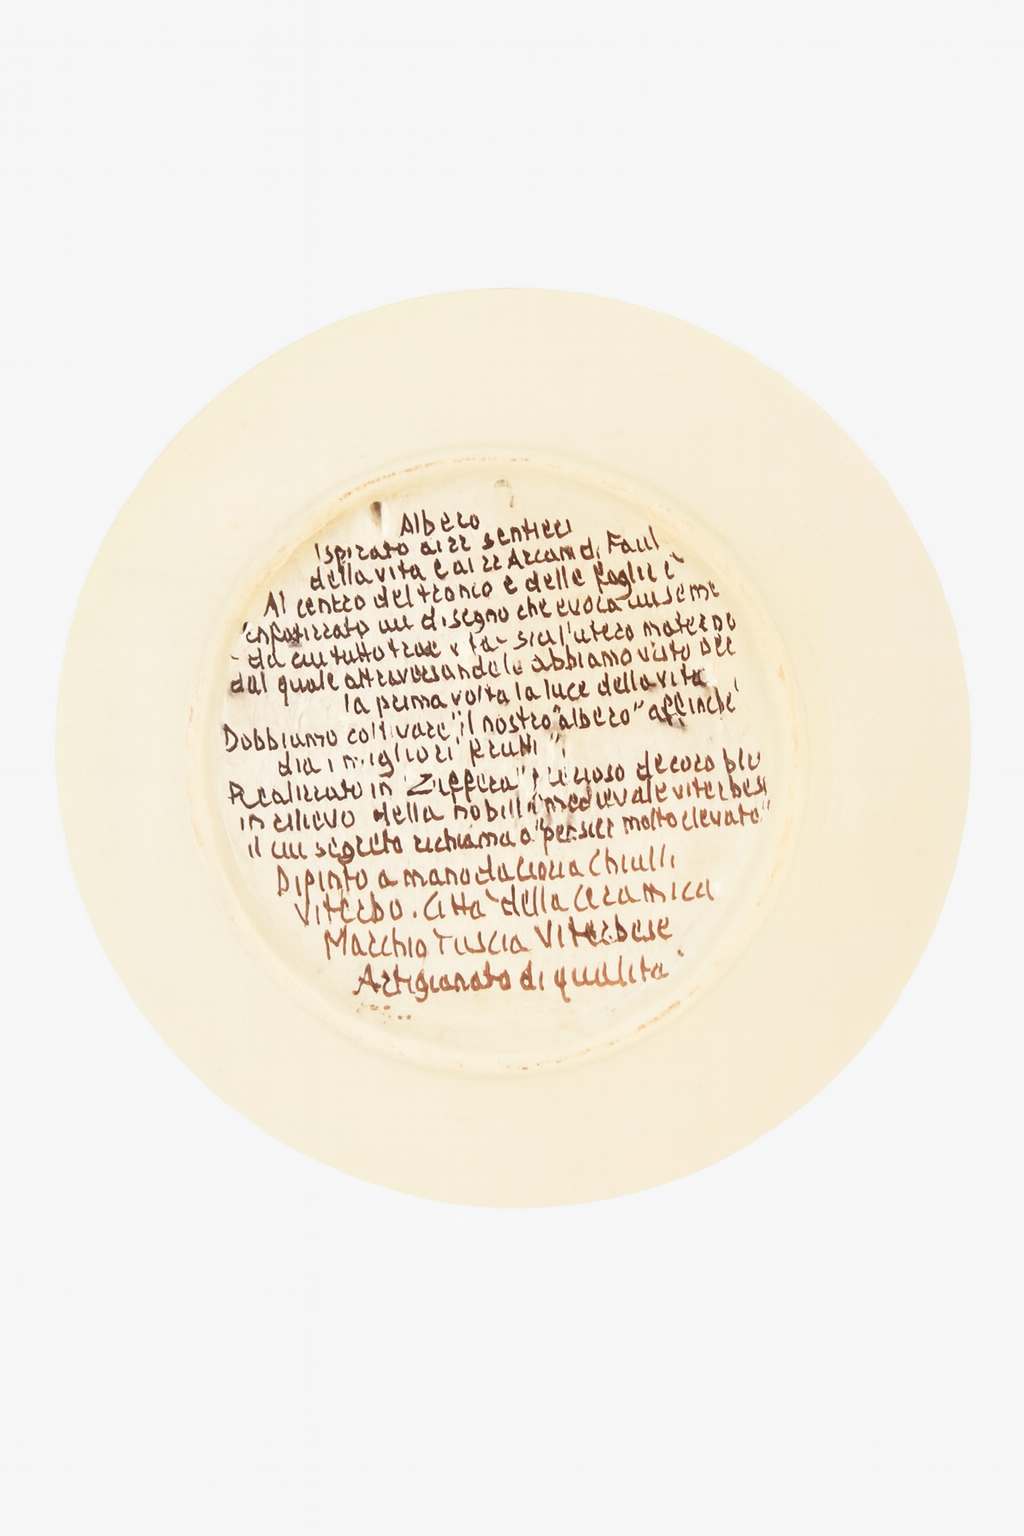 Albero
Ispirato ai 22 sentieri
della vita e ai 22 Arcani di Faul
Al centro del tronco e delle foglie è
enfatizzato un disegno che evoca un seme
da cui tutto trae vita - sia l'utero materno
dal quale attraversandolo abbiamo visto per
la prima volta la luce della vita
Dobbiamo coltivare "il nostro "albero" affinchè
dia i migliori frutti"
Realizzato in "Zaffera" decoro blu
in rilievo della nobiltà medievale viterbese
il cui segreto richiama a "pensier molto elevato"
Dipinto a mano da Chiulli
Viterbo. Città della Ceramica
Marchio Tuscia Viterbese
Artigianato di qualità